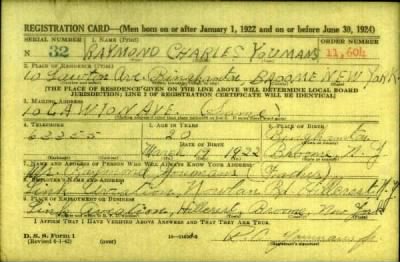 REGISTRATION CARD—(Men born on or after January 1, 1922 and on or before June 30, 1924)
SERIAL NUMBER 1. NAME (Print) ORDER NUMBER
N 32 RAYMOND CHARLES YOUMANS 11,604
2. PLACE OF RESIDENCE (Print)
10 Lawton Ave. Binghamton BROOME NEW YORK
[THE PLACE OF RESIDENCE GIVEN ON THE LINE ABOVE WILL DETERMINE LOCAL BOARD
JURISDICTION; LINE 2 OF REGISTRATION CERTIFICATE WILL BE IDENTICAL]
3. MAILING ADDRESS
10 LAWTON AVE.
4. TELEPHONE 5. AGE IN YEARS 6. PLACE OF BIRTH
20 Binghamton
March 1922 Broome, N.Y.
7. NAME AND ADDRESS OF PERSON WHO WILL ALWAYS KNOW YOUR ADDRESS
Youmans (Father)
8. EMPLOYER'S NAME AND ADDRESS
Link Aviation Hillcrest N.Y.
9. PLACE OF EMPLOYMENT OR BUSINESS
Link Aviation, Hillcrest, Broome New York
I AFFIRM THAT I HAVE VERIFIED ABOVE ANSWERS AND THAT THEY ARE TRUE.
D. S. S. Form 1
(Revised 6-1-42) (over)